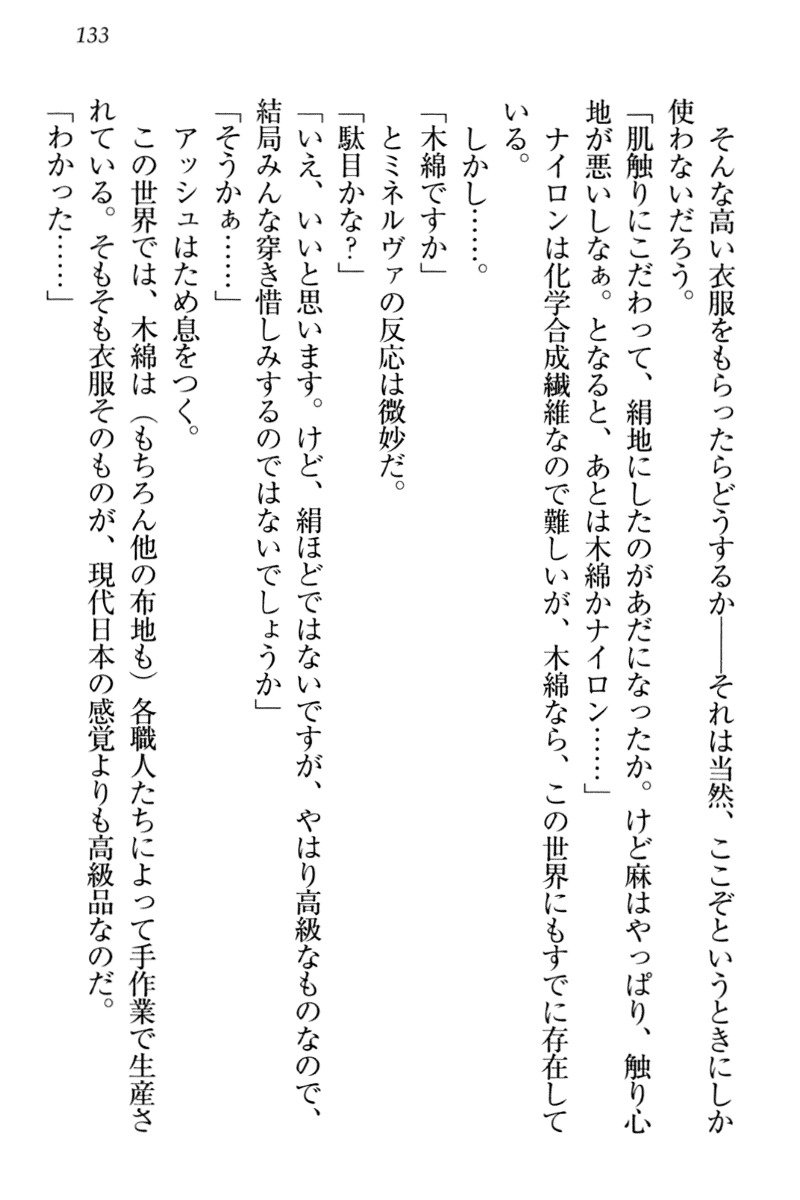 133
そんな高い衣服をもらったらどうするか――それは当然、ここぞというときにしか
使わないだろう。
「肌触りにこだわって、絹地にしたのがあだになったか。けど麻はやっぱり、触り心
地が悪いしなぁ。となると、あとは木綿かナイロン……」
ナイロンは化学合成繊維なので難しいが、木綿なら、この世界にもすでに存在して
いる。
しかし……。
「木綿ですか」
とミネルヴァの反応は微妙だ。
「駄目かな?」
「いえ、いいと思います。けど、絹ほどではないですが、やはり高級なものなので、
結局みんな穿き惜しみするのではないでしょうか」
「そうかぁ……」
アッシュはため息をつく。
この世界では、木綿は(もちろん他の布地も)各職人たちによって手作業で生産さ
れている。そもそも衣服そのものが、現代日本の感覚よりも高級品なのだ。
「わかった……」